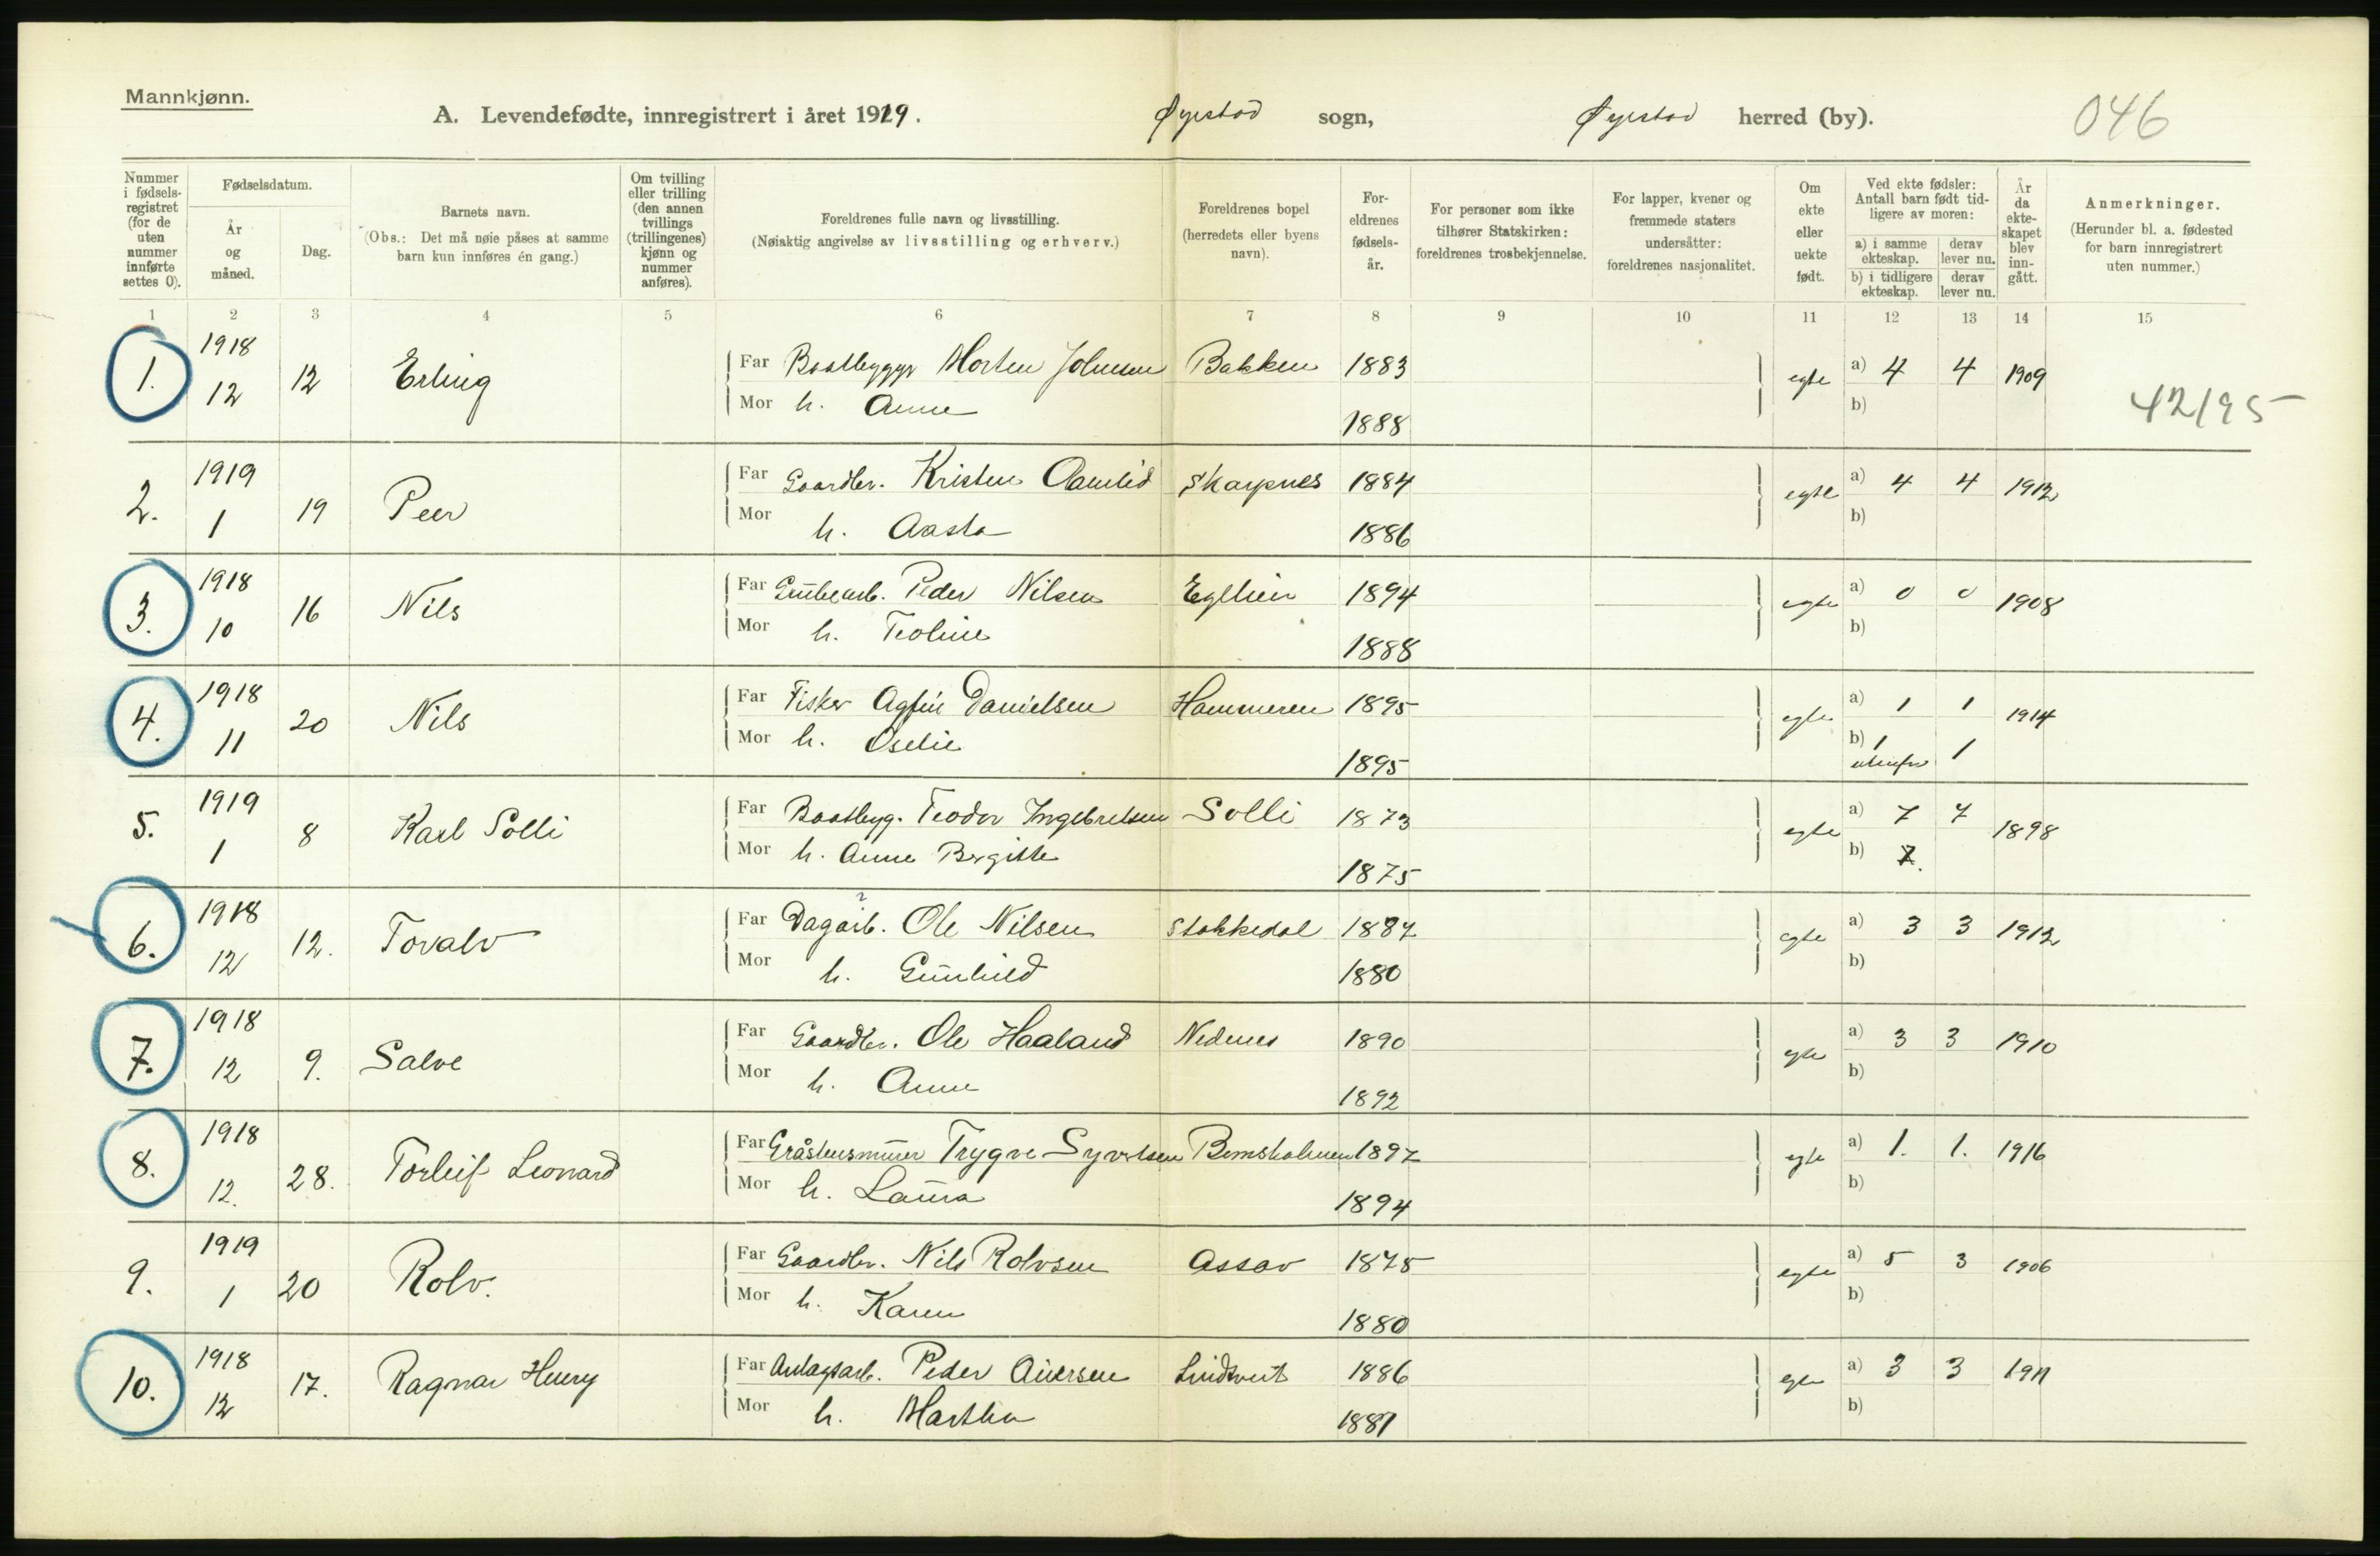 Mannkjønn.
A. Levendefødte, innregistrert i året 1919. Øyestad sogn, Øyestad herred (by). 046
Nummer i fødselsregistret (for de uten nummer innførte settes 0).
Fødselsdatum.
År og måned.
Dag.
Barnets navn.
(Obs.: Det må nøie påses at samme barn kun innføres én gang.)
Om tvilling eller trilling (den annen tvillings (trillingenes) kjønn og nummer anføres).
Foreldrenes fulle navn og livsstilling.
(Nøiaktig angivelse av livsstilling og erhverv.)
Foreldrenes bopel (herredets eller byens navn).
Foreldrenes fødselsår.
For personer som ikke tilhører Statskirken: foreldrenes trosbekjennelse.
For lapper, kvener og fremmede staters undersåtter: foreldrenes nasjonalitet.
Om ekte eller uekte født.
Ved ekte fødsler: Antall barn født tidligere av moren:
a) i samme ekteskap. derav lever nu.
b) i tidligere ekteskap. derav lever nu.
År da ekteskapet blev inngått.
Anmerkninger.
(Herunder bl. a. fødested for barn innregistrert uten nummer.)
1 2 3 4 5 6 7 8 9 10 11 12 13 14 15
1. 1918 12 12 Erling Far Baatbygger Morten Johnsen Bakken 1883 egte a) 4 4 1909
Mor h. Anne 1888 b) 42195
2. 1919 1 19 Peer Far Gaardbr. Kristen Aamlid Skarpnes 1884 egte a) 4 4 1912
Mor h. Aasta 1886 b)
3. 1918 10 16 Nils Far Grubearb. Peder Nilsen 1894 egte a) 0 0 1908
Mor h. Teoline 1888 b)
4. 1918 11 20 Nils Far Fisker Agfin Danielsen Hammeren 1895 egte a) 1 1 1914
Mor h. Oselie 1895 b) 1 1
5. 1919 1 8 Karl Solli Far Baatbyg. Teodor Ingebretsen Solli 1873 egte a) 7 7 1898
Mor h. Anne Birgitte 1875 b) 7.
6. 1918 12 12. Tovalv Far Dagarb. Ole Nilsen Stokkedal 1887 egte a) 3 3 1912
Mor h. Gunhild 1880 b)
7. 1918 12 9. Salve Far Gaardbr. Ole Haaland Nedenes 1890 egte a) 3 3 1910
Mor h. Anne 1892 b)
8. 1918 12. 28. Torleif Leonard Far Gråstensmurer Trygve Syvertsen Bomsholmen 1897 egte a) 1. 1. 1916
Mor h. Laura 1894 b)
9. 1919 1 20 Rolv. Far Gaardbr. Nils Rolvsen Assav 1875 egte a) 5 3 1906
Mor h. Karen 1880 b)
10. 1918 12 17. Ragnar Henry Far Anlagsarb. Peder Aiversen Lindtveit 1886 egte a) 3 3 1911
Mor h. Martha 1887 b)